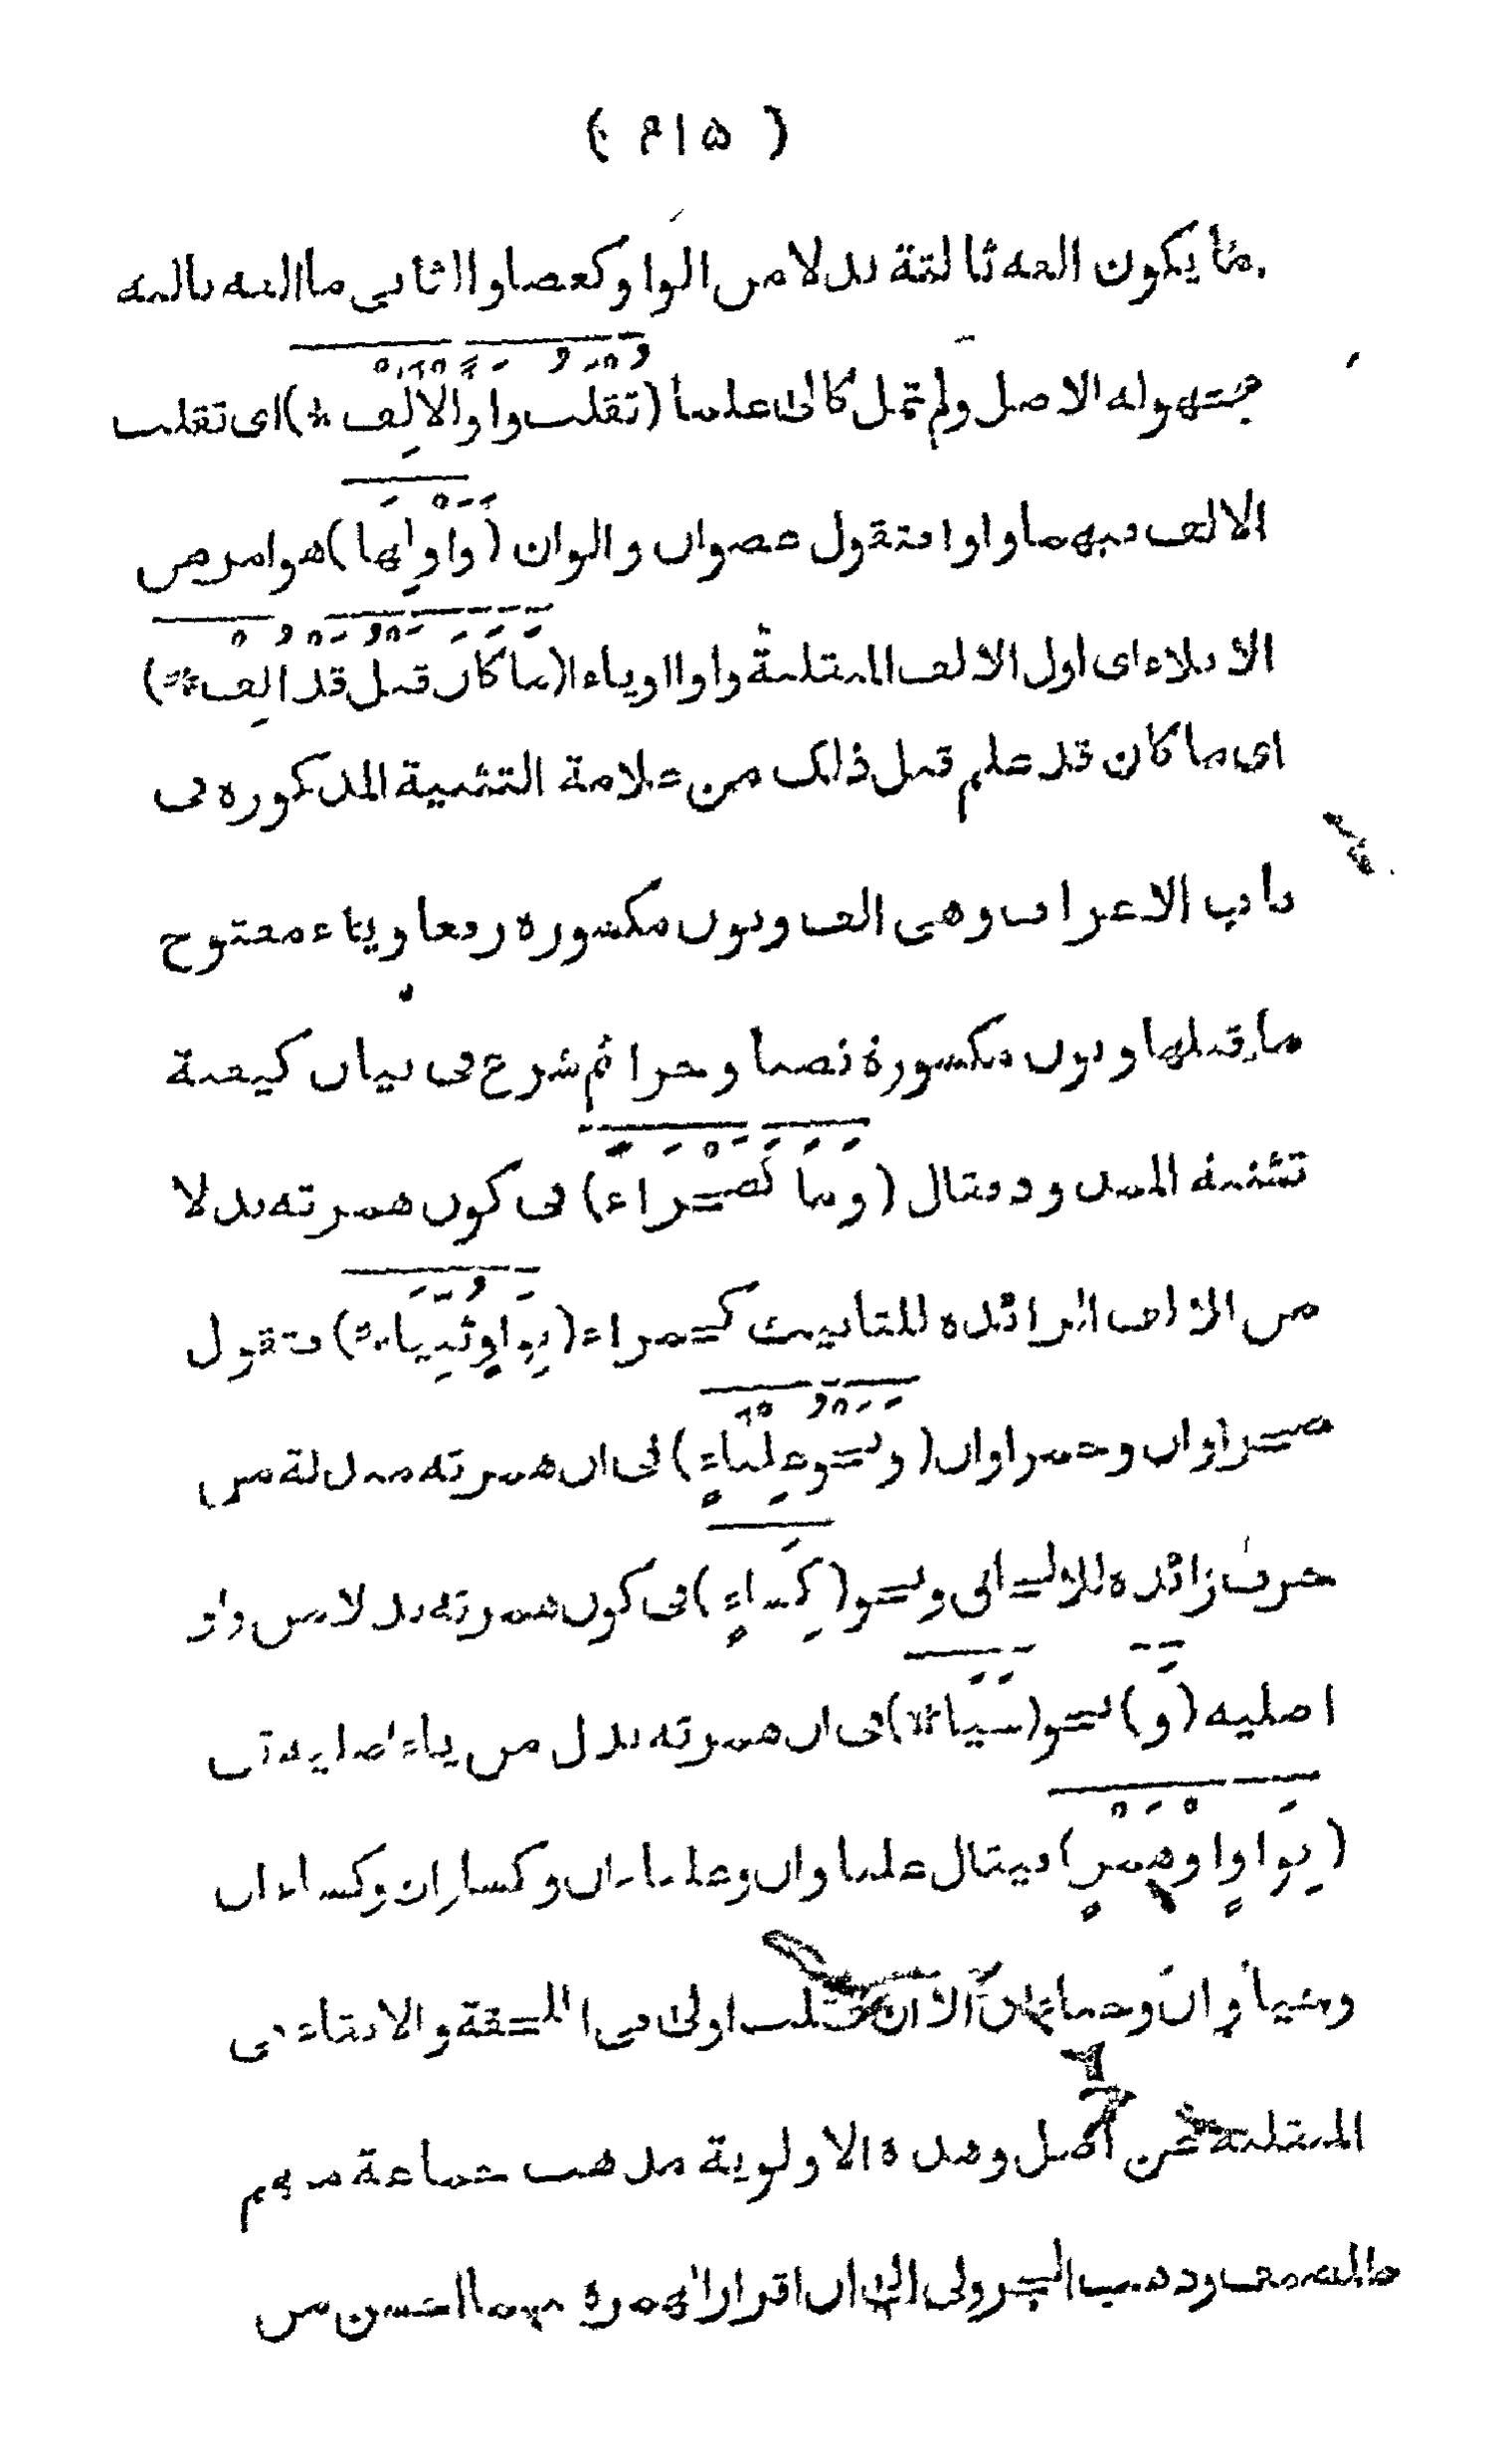 ( ٥١٢ )
ما يكون الفه ثالثة بدلا من الواو كعصا والثاني ما الفه ثالثة
مجهولة الاصل ولم تمل كالى علما (تقلب واوا الالف *) اى تقلب
الالف فيهما واوا فتقول عصوان والوان (وَأَوْلِهَا) هو امر من
الايلاء اى اول الالف المنقلبة واوا او ياء (مَا كَانَ قبل قد أُلِف *)
اى ما كان قد علم قبل ذلك من علامة التثنية المذكورة فى
باب الاعراب وهى الف ونون مكسورة رفعا وياء مفتوح
ما قبلها ونون مكسورة نصبا وجرا ثم شرع فى بيان كيفية
تثنية الممدود فقال (وَمَا كَصَحْرَاءَ) فى كون همزته بدلا
من الالف الزائدة للتانيث كحمراء (بِوَاوٍ ثُنِّيَا *) فتقول
صحراوان وحمراوان (ونحو عِلْبَاءٍ) فى ان همزته مبدلة من
حرف زائدة للالحاق ونحو (كِسَاءٍ) فى كون همزته بدلا من واو
اصلية (وَ) نحو (حَيَا *) فى ان همزته بدل من ياء اصلية
(بِوَاوٍ اوْ هَمْزٍ) فيقال علباوان وعلباءان وكساوان وكساءان
وحياوان وحياءان الا ان القلب اولى فى الملحقة والابقاء فى
المنقلبة عن اصل وهذه الاولوية مذهب جماعة منهم
المصنف وذهب الجزولى الى ان اقرار الهمزة فيهما احسن من